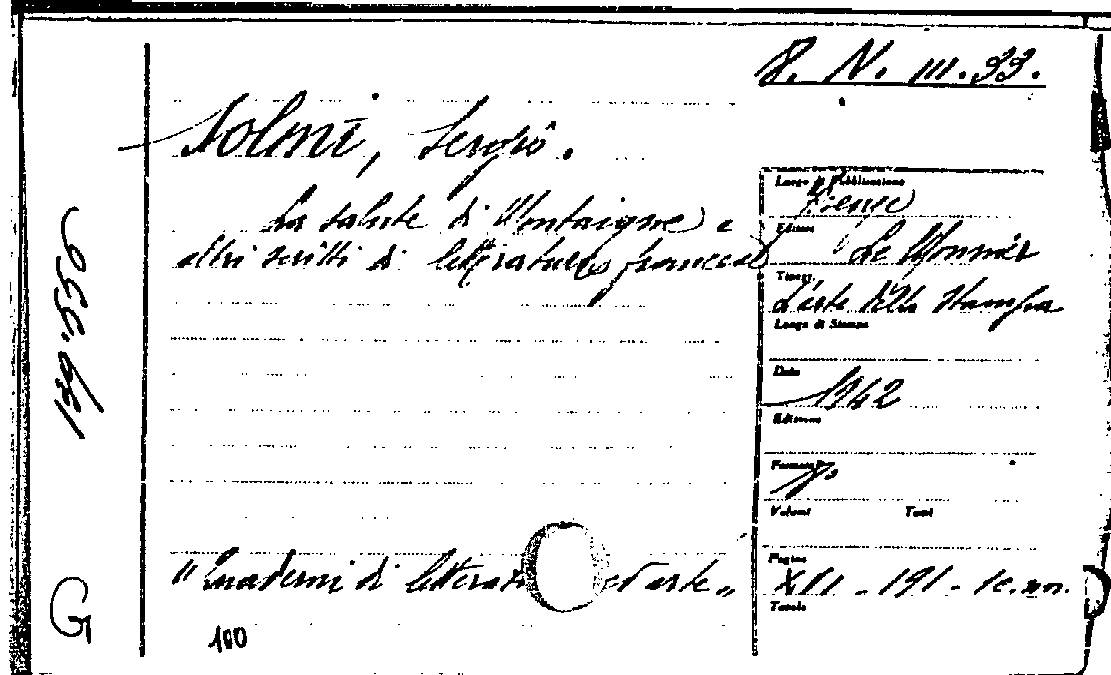 8. N. III. 33.
Solmi, Sergio.
La salute di Montaigne e
altri scritti di letteratura francese
"Quaderni di letteratura ed arte"
100
Luogo di Pubblicazione
Firenze
Editore
Le Monnier
L'arte della Stampa
Luogo di Stampa
Data
1942
Edizione
Formato
8°
Volumi Tomi
Pagine
XII - 191 - 1c. nn.
Tavole
139.556
G